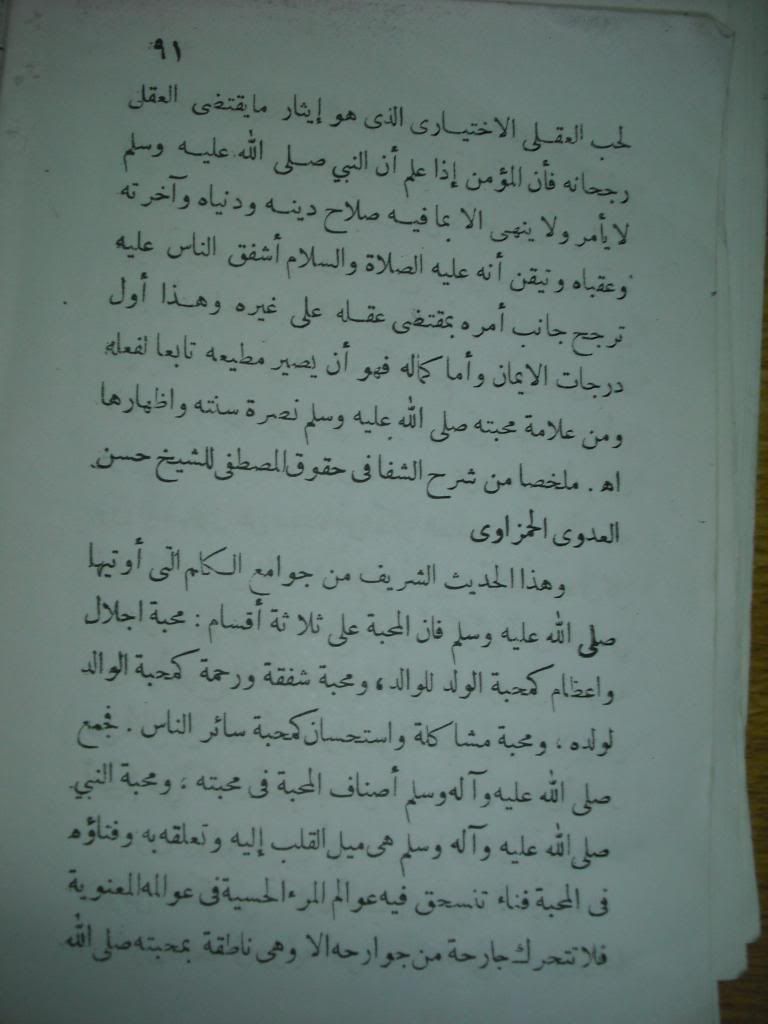 ٩١
لحب العقلى الاختيارى الذى هو إيثار مايقتضى العقل
رجحانه فأن المؤمن إذا علم أن النبي صلى الله عليه وسلم
لا يأمر ولا ينهى الا بما فيه صلاح دينه ودنياه وآخرته
وعقباه وتيقن أنه عليه الصلاة والسلام أشفق الناس عليه
ترجح جانب أمره بمقتضى عقله على غيره وهذا أول
درجات الايمان وأما كماله فهو أن يصير مطيعه تابعا لفعله
ومن علامة محبته صلى الله عليه وسلم نصرة سنته واظهارها
اه . ملخصا من شرح الشفا فى حقوق المصطفى للشيخ حسن
العدوى الحمزاوى
وهذا الحديث الشريف من جوامع الكلم التى أوتيها
صلى الله عليه وسلم فان المحبة على ثلاثة أقسام : محبة اجلال
واعظام كمحبة الولد للوالد ، ومحبة شفقة ورحمة كمحبة الوالد
لولده ، ومحبة مشاكلة واستحسان كمحبة سائر الناس . فجمع
صلى الله عليه وآله وسلم أصناف المحبة فى محبته ، ومحبة النبي
صلى الله عليه وآله وسلم هى ميل القلب إليه وتعلقه به وفناؤه
فى المحبة فناء تنسحق فيه عوالم المرء الحسية فى عوالمه المعنوية
فلا تتحرك جارحة من جوارحه الا وهى ناطقة بمحبته صلى الله